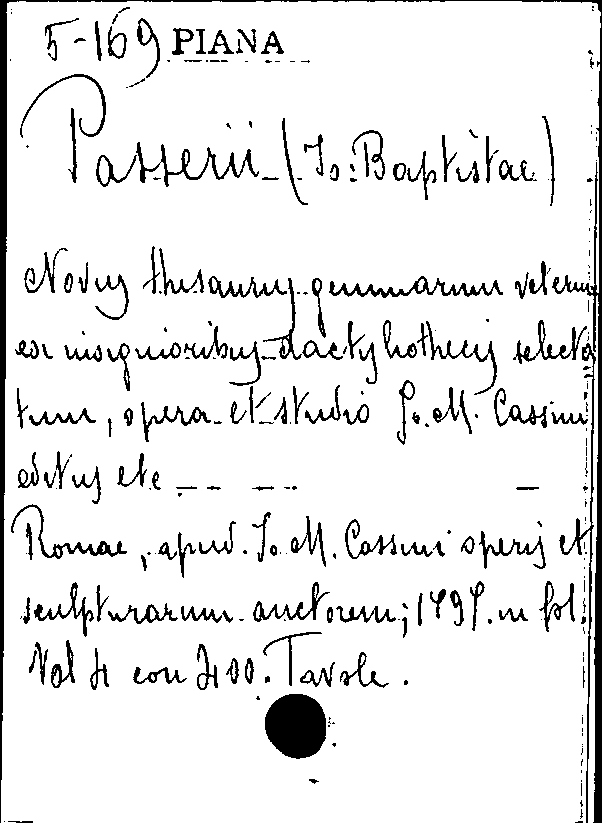 5-169 PIANA
Passerii (Jo: Baptistae)
Novus thesaurus gemmarum veterum
ex insignioribus dactyliothecis selecta
tum, opera et studio Jo. M. Cassini
editus etc
Romae, apud. Jo. M. Cassini operis et
sculpturarum auctorem; 1797. in fol.
Vol 4 con 400. Tavole.